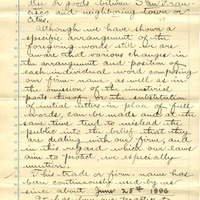 dise or goods between San Fran-
cisco and neighboring town or
Cities.
Although we have shown a
specific arrangement of the
foregoing words still we are
aware that various changes in
the arrangement and position of
each individual word composing
our firm name, as well as in
the omission of the
parts thereof or the substitution
of initial letters in place of full
words, can be made and at the
same time tend to mislead the
public into the belief that they
are dealing with our firm, and
in this regard which we have
aim to protect, we especially
mention.
This trade or firm name has
been continuously used by us
since about June 25th 1896
It has been our practice to